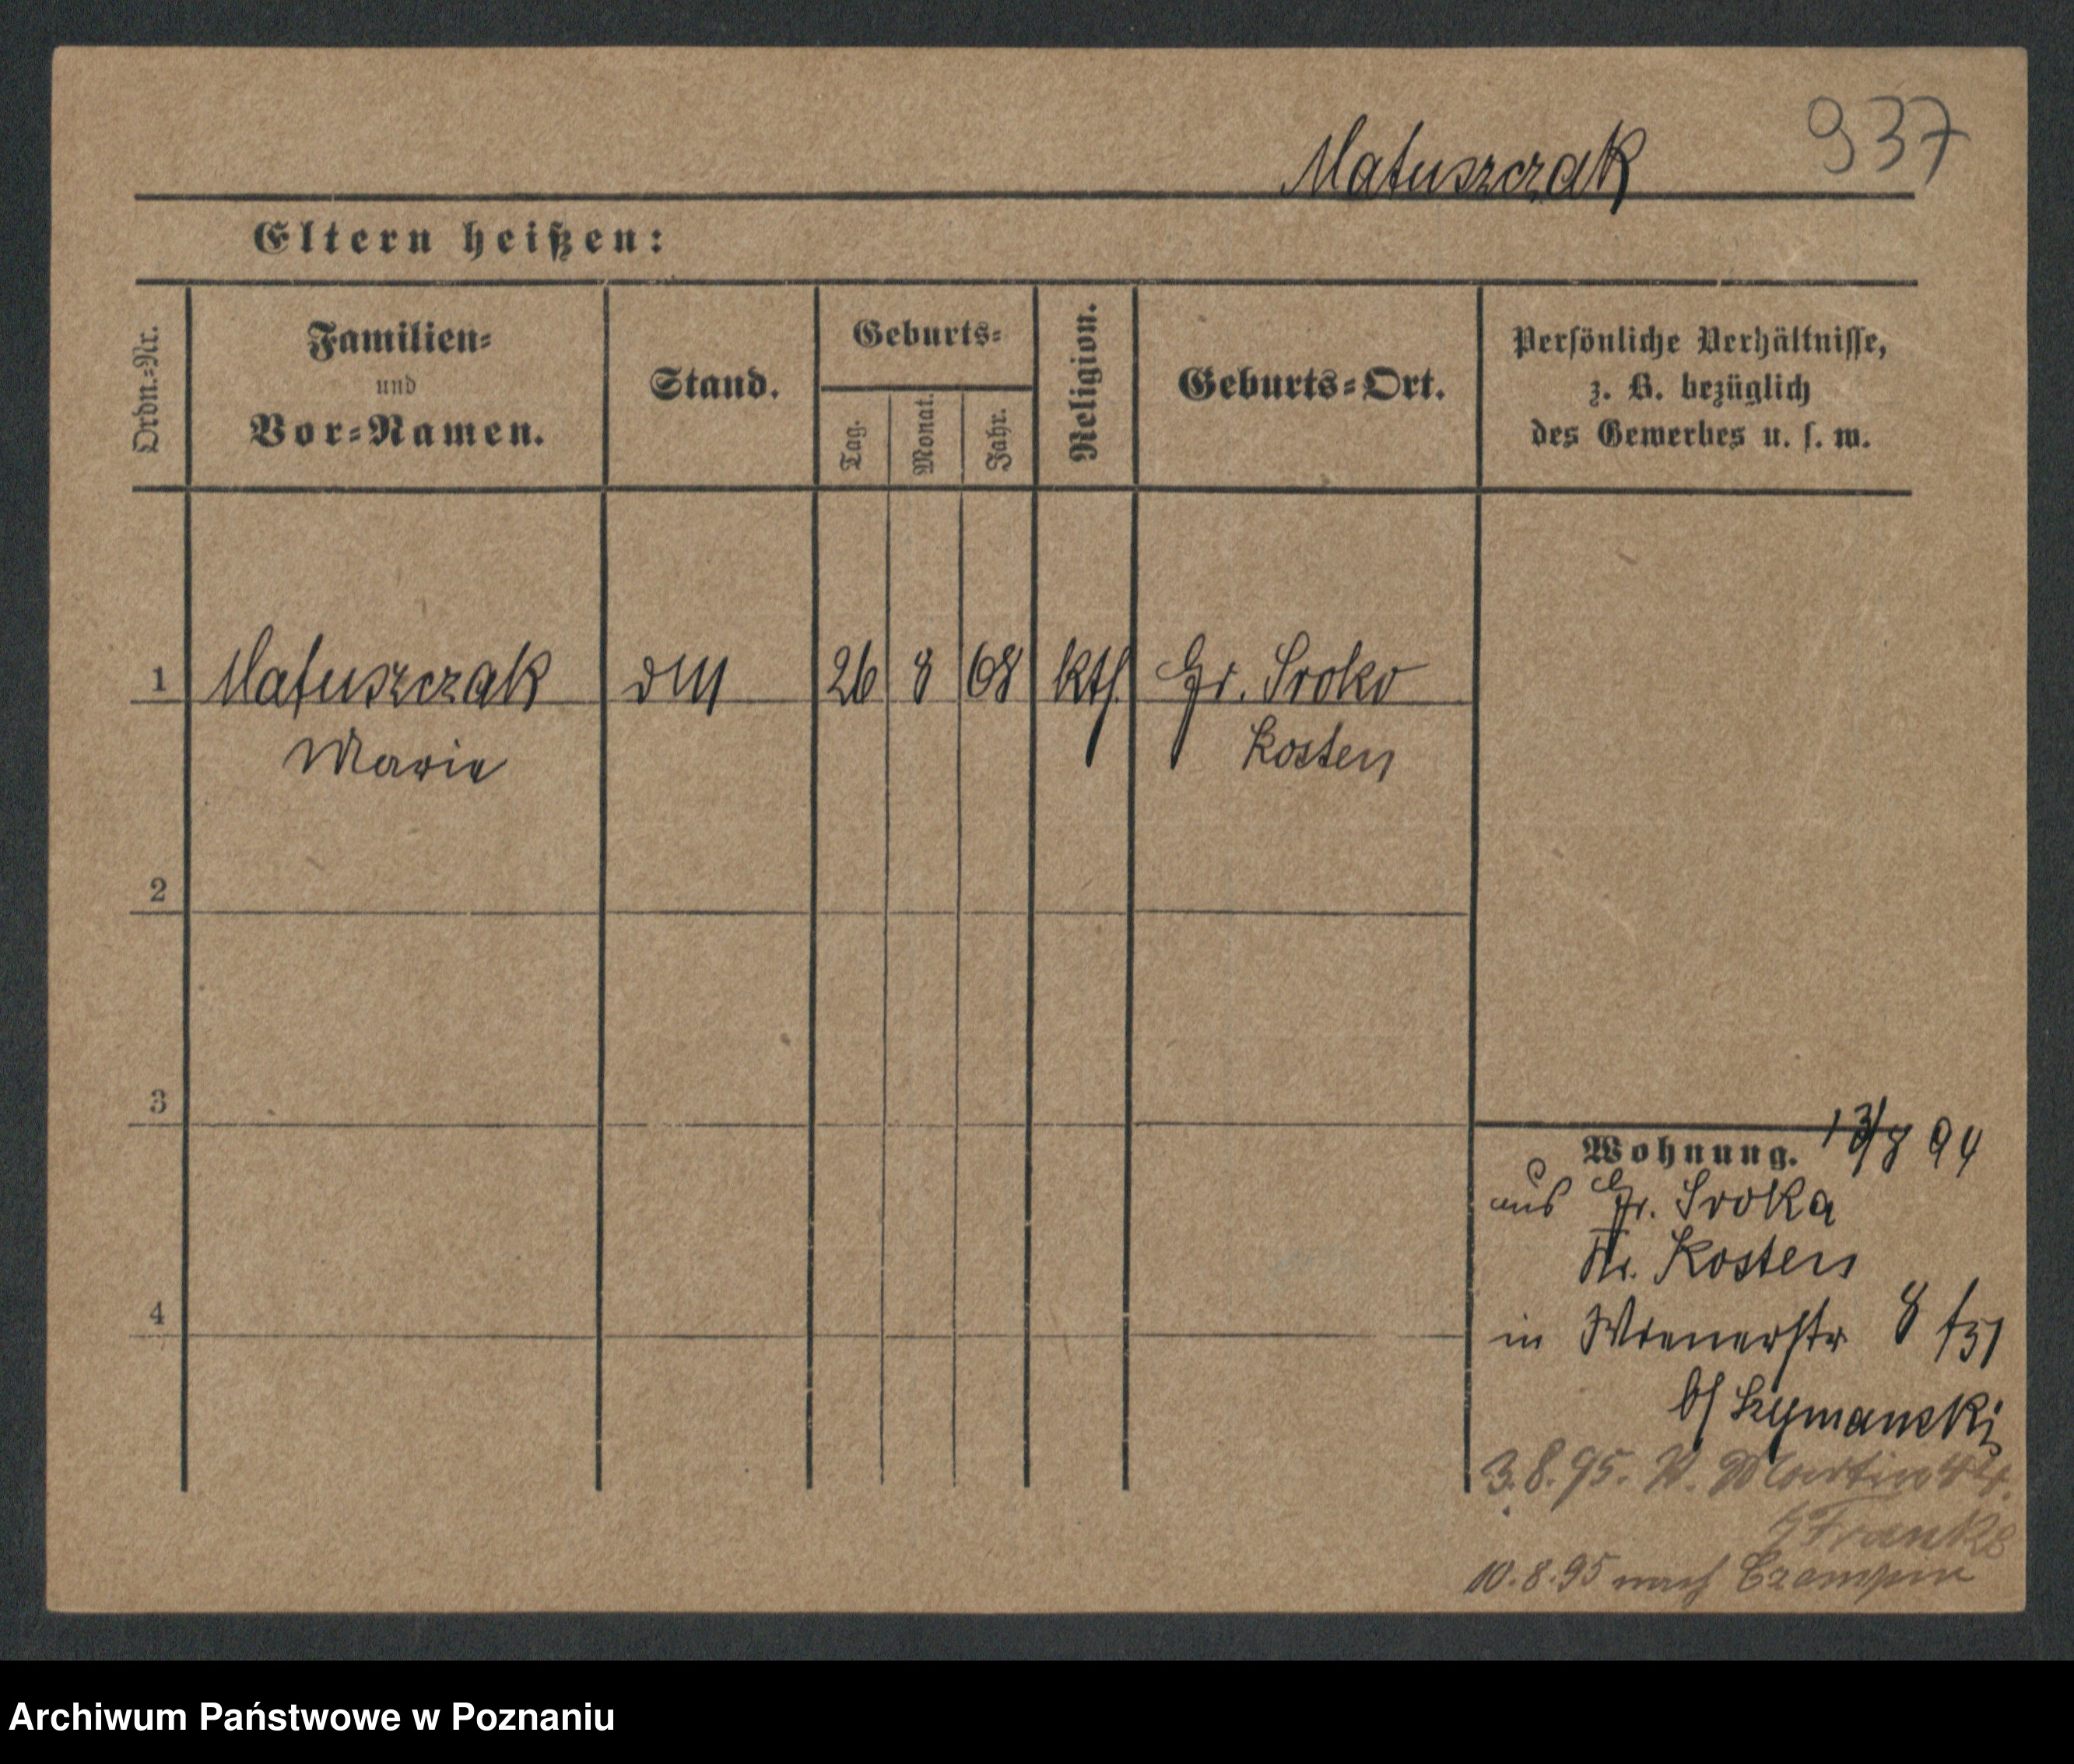 937
Matuszczak
Eltern heißen:
Ordn.-Nr.
Familien-
und
Vor-Namen.
Stand.
Geburts-
Tag.
Monat.
Jahr.
Religion.
Geburts-Ort.
Persönliche Verhältnisse,
z. B. bezüglich
des Gewerbes u. s. w.
1 Matuszczak 26 8 68 kth. Gr. Sroko
Marie Kosten
2
3
4
Wohnung. 13/8 94
aus Gr. Sroka
Kr. Kosten
in Wienerstr 8
b/ Szymanski
3.8.95. Martin 44.
Franke
10.8.95 nach Czempin
Archiwum Państwowe w Poznaniu